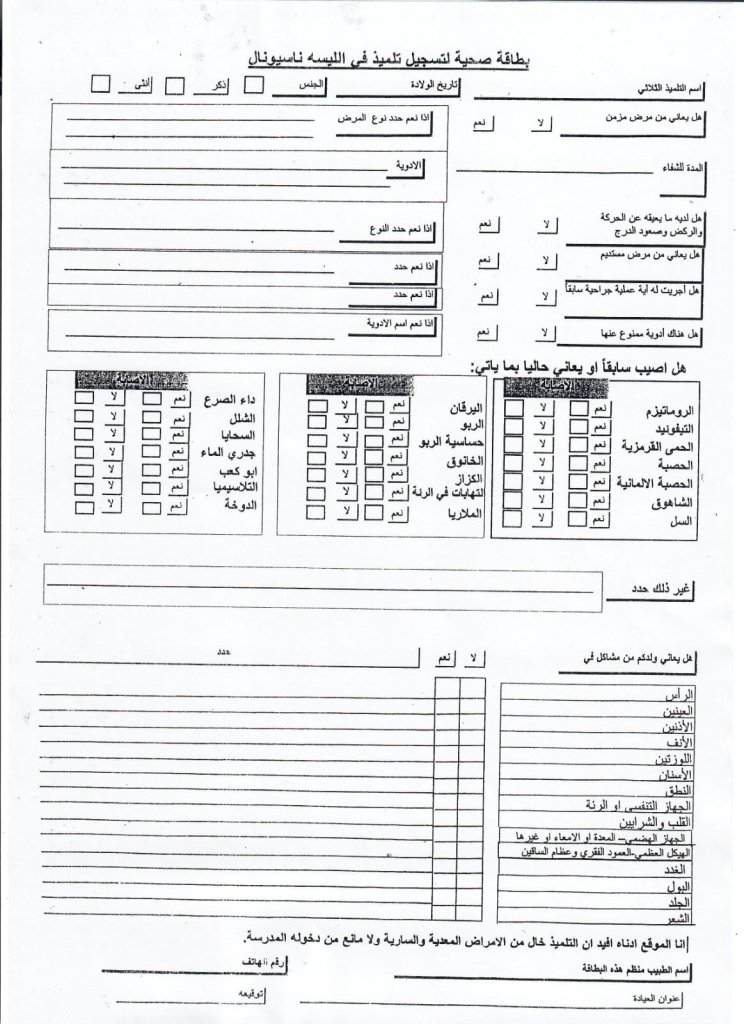 بطاقة صحية لتسجيل تلميذ في الليسه ناسيونال
اسم التلميذ الثلاثي تاريخ الولادة الجنس ذكر أنثى
هل يعاني من مرض مزمن لا نعم اذا نعم حدد نوع المرض
المدة للشفاء الادوية
هل لديه ما يعيقه عن الحركة
والركض وصعود الدرج لا نعم اذا نعم حدد النوع
هل يعاني من مرض مستديم لا نعم اذا نعم حدد
هل أجريت له أية عملية جراحية سابقاً لا نعم اذا نعم حدد
هل هناك أدوية ممنوع عنها لا نعم اذا نعم اسم الادوية
هل اصيب سابقاً او يعاني حاليا بما ياتي:
الاصابة
الروماتيزم نعم لا
التيفونيد نعم لا
الحمى القرمزية نعم لا
الحصبة نعم لا
الحصبة الالمانية نعم لا
الشاهوق نعم لا
السل نعم لا
الاصابة
اليرقان نعم لا
الربو نعم لا
حساسية الربو نعم لا
الخانوق نعم لا
الكزاز نعم لا
لتهابات في الرئة نعم لا
الملاريا نعم لا
الاصابة
داء الصرع نعم لا
الشلل نعم لا
السحايا نعم لا
جدري الماء نعم لا
ابو كعب نعم لا
التلاسيميا نعم لا
الدوخة نعم لا
غير ذلك حدد
هل يعاني ولدكم من مشاكل في لا نعم حدد
الرأس
العينين
الأذنين
الأنف
اللوزتين
الأسنان
النطق
الجهاز التنفسي او الرئة
القلب والشرايين
الجهاز الهضمي– المعدة او الامعاء او غيرها
الهيكل العظمي-العمود الفقري وعظام الساقين
الغدد
البول
الجلد
الشعر
انا الموقع ادناه افيد ان التلميذ خال من الامراض المعدية والسارية ولا مانع من دخوله المدرسة.
اسم الطبيب منظم هذه البطاقة رقم الهاتف
عنوان العيادة توقيعه